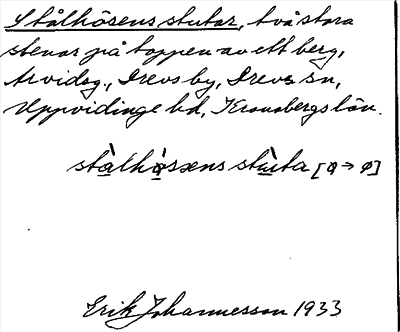 Stålhösens stutar, två stora
stenar på toppen av ett berg,
Arvidsg., Drevs by, Drevs sn,
Uppvidinge hd, Kronobergs län.
stålhössens stuta [ɵ → ø]
Erik Johannesson 1933